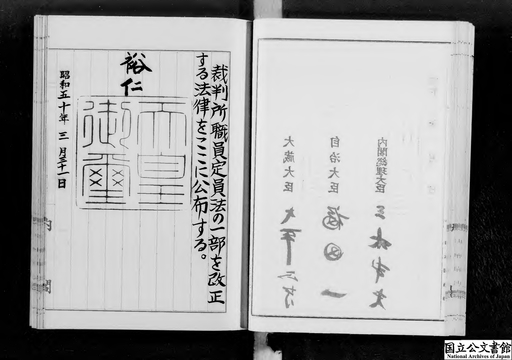 内閣総理大臣 三木武夫
自治大臣 福田一
大蔵大臣 大平正芳
裁判所職員定員法の一部を改正
する法律をここに公布する。
裕仁
天皇
御璽
昭和五十年三月三十一日
内閣
国立公文書館
National Archives of Japan